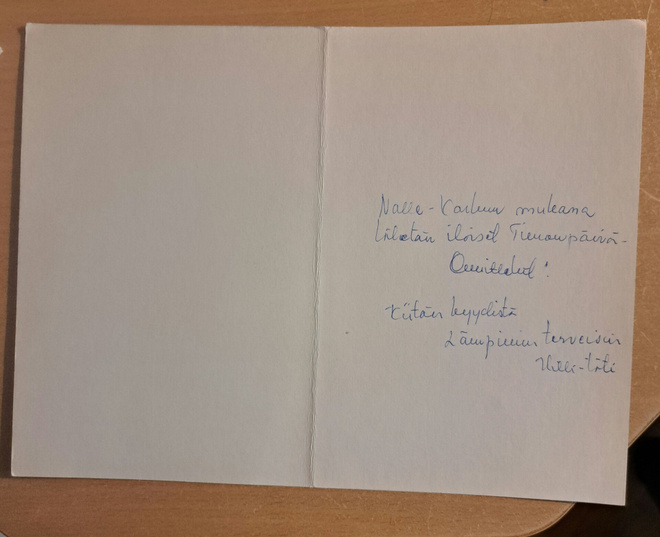 Nalle-Karhun mukana
Lähetän iloiset Timonpäivä-
Onnittelut!
Kiitän kyydistä
Lämpimin terveisin
-täti